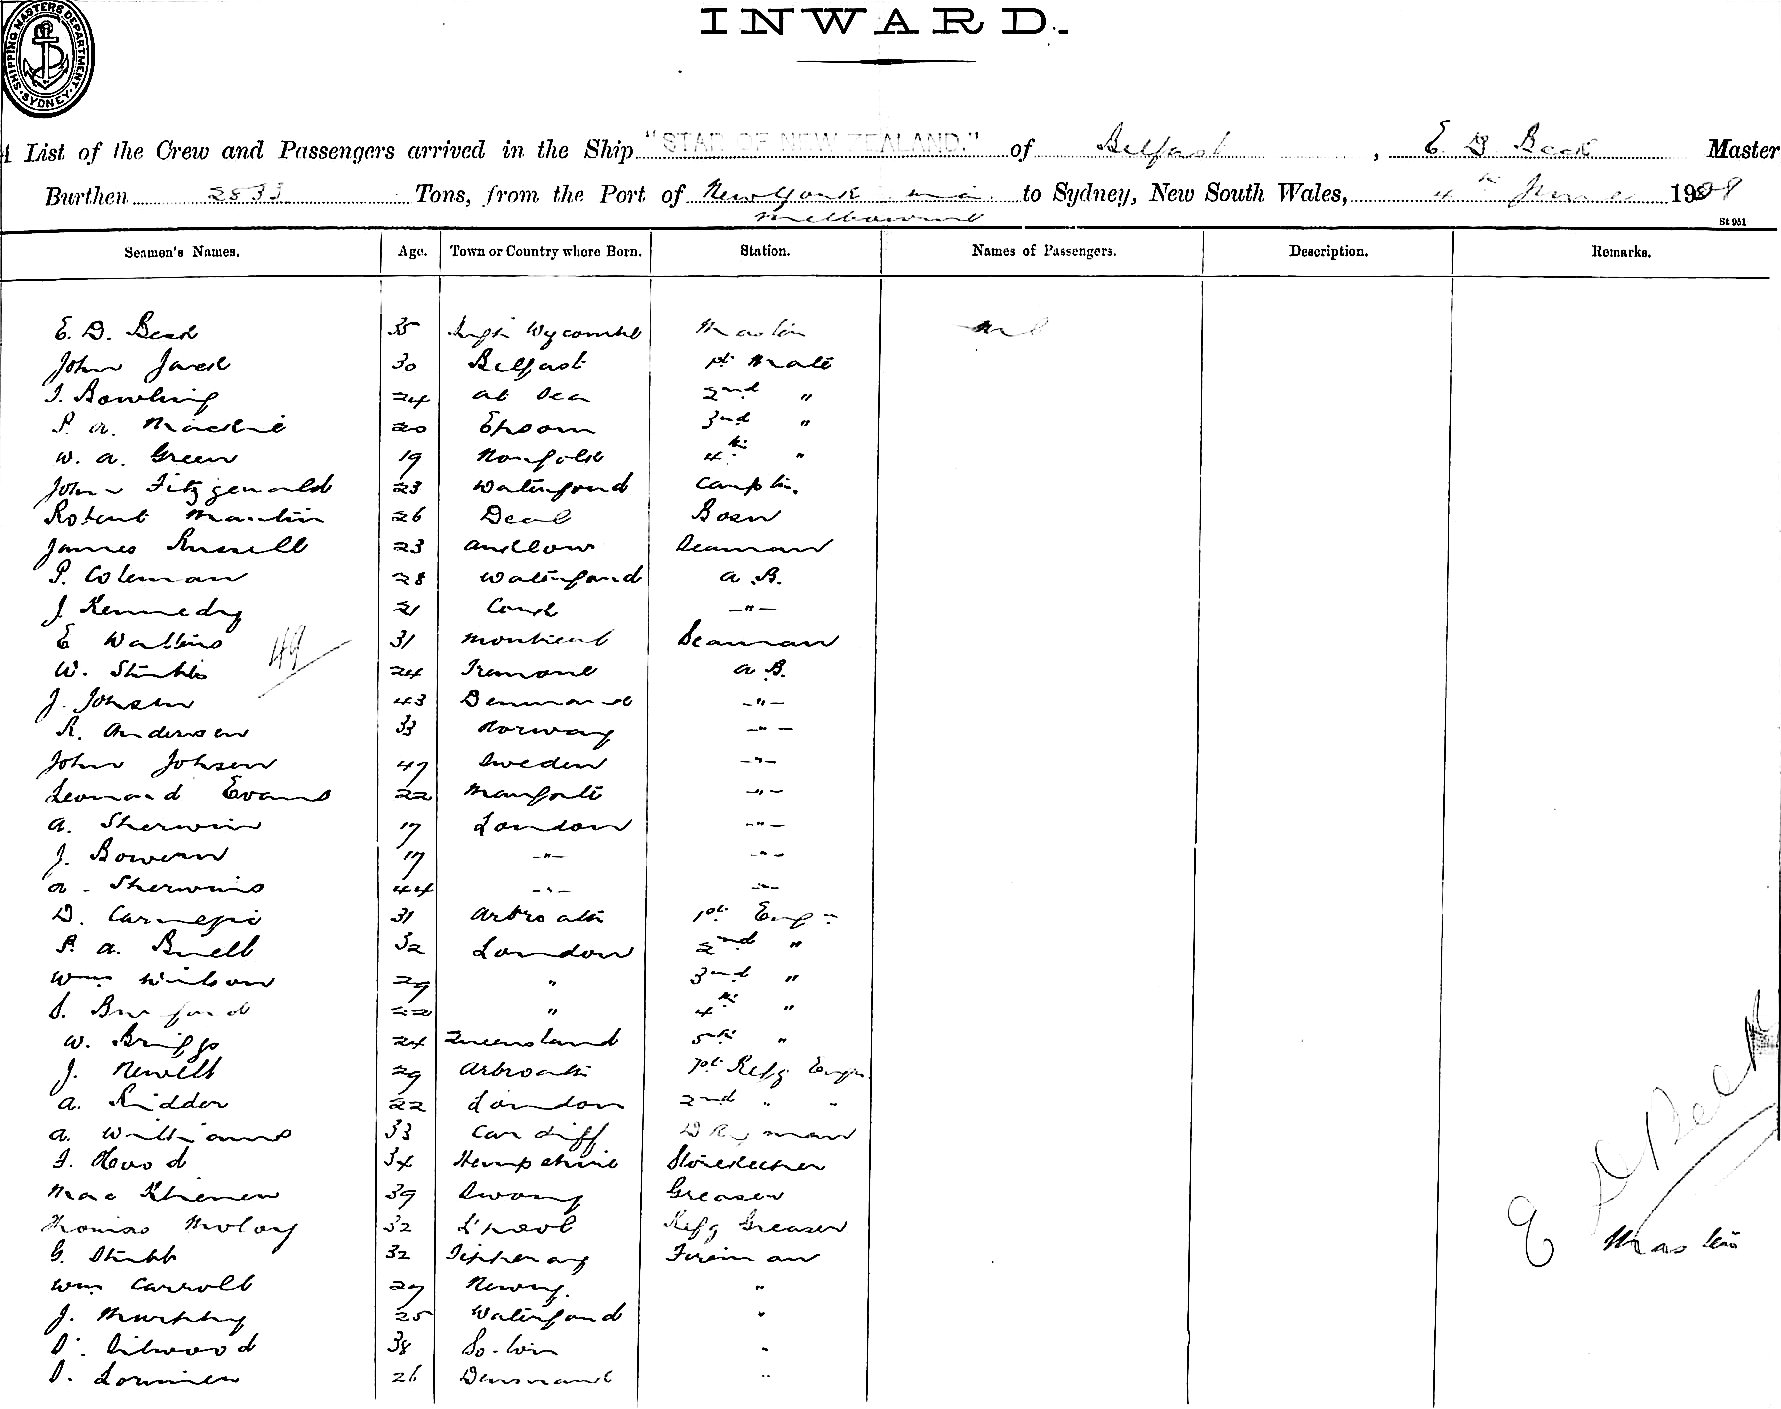 SHIPPING MASTERS DEPARTMENT SYDNEY
INWARD.
A List of the Crew and Passengers arrived in the Ship "STAR OF NEW ZEALAND." of Belfast, E D Beck Master
Burthen 2833 Tons, from the Port of New York via Melbourne to Sydney, New South Wales, 4th June 1908
St 951
Seamen's Names. Age. Town or Country where Born. Station. Names of Passengers. Description. Remarks.
E. D. Beck 35 High Wycombe Master Nil
John Jack 30 Belfast 1st Mate
J. Bowling 24 at Sea 2nd "
P. A. Mackie 20 Epsom 3rd "
W. A. Green 19 Norfolk 4th "
John Fitzgerald 23 Waterford Carptr.
Robert Martin 26 Deal Bosn
James Russell 23 Seaman
P. Coleman 28 Waterford A.B.
J. Kennedy 21 Cork -"-
E Watkins 31 Montreal Seaman
49
W. Stubbs 24 A.B.
J. Johsen 43 Denmark -"-
R. Andersen 33 Norway -"-
John Johsen 47 Sweden -"-
Leonard Evans 22 -"-
A. Sherwin 17 London -"-
J. Bowern 17 -"- -"-
A. Sherwins 44 -"- -"-
D. Carnegie 31 Arbroath 1st Engr
P. A. Buell 32 London 2nd "
Wm Wilson 29 " 3rd "
S. Burford 22 " 4th "
W. Briggs 24 Queensland 5th "
J. Newell 29 Arbroath 1st Refg Engr
A. Kidder 22 London 2nd " "
A. Williams 33 Cardiff D Ky man
J. Hood 34 Hempshire Storekeeper
39 Greaser
Thomas Molony 32 L'pool Refg Greaser
G. Stubb 32 Tipperary Fireman
Wm Carroll 29 Newry. "
J. Murphy 25 Waterford "
38 So.ton "
26 Denmark "
E D Beck
Master